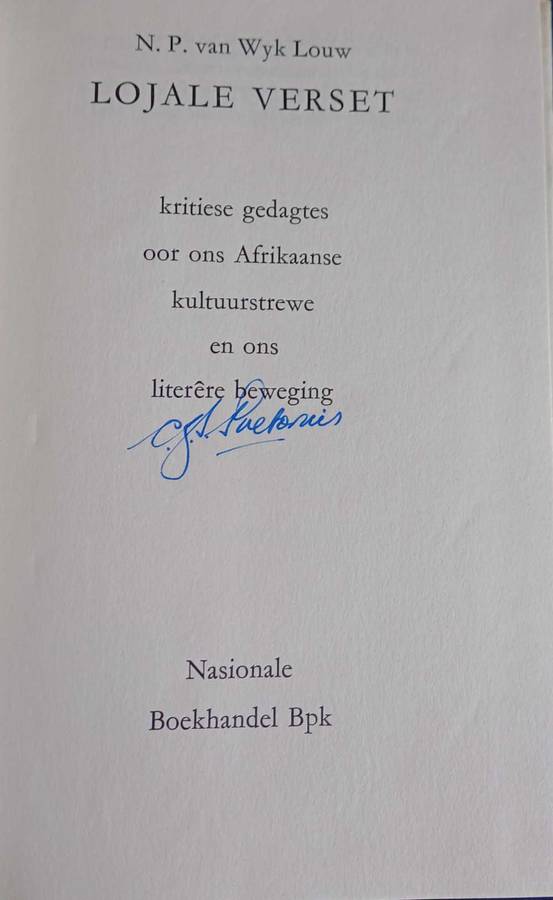 N. P. van Wyk Louw
LOJALE VERSET
kritiese gedagtes
oor ons Afrikaanse
kultuurstrewe
en ons
literêre beweging
C.J.S. Pretorius
Nasionale
Boekhandel Bpk